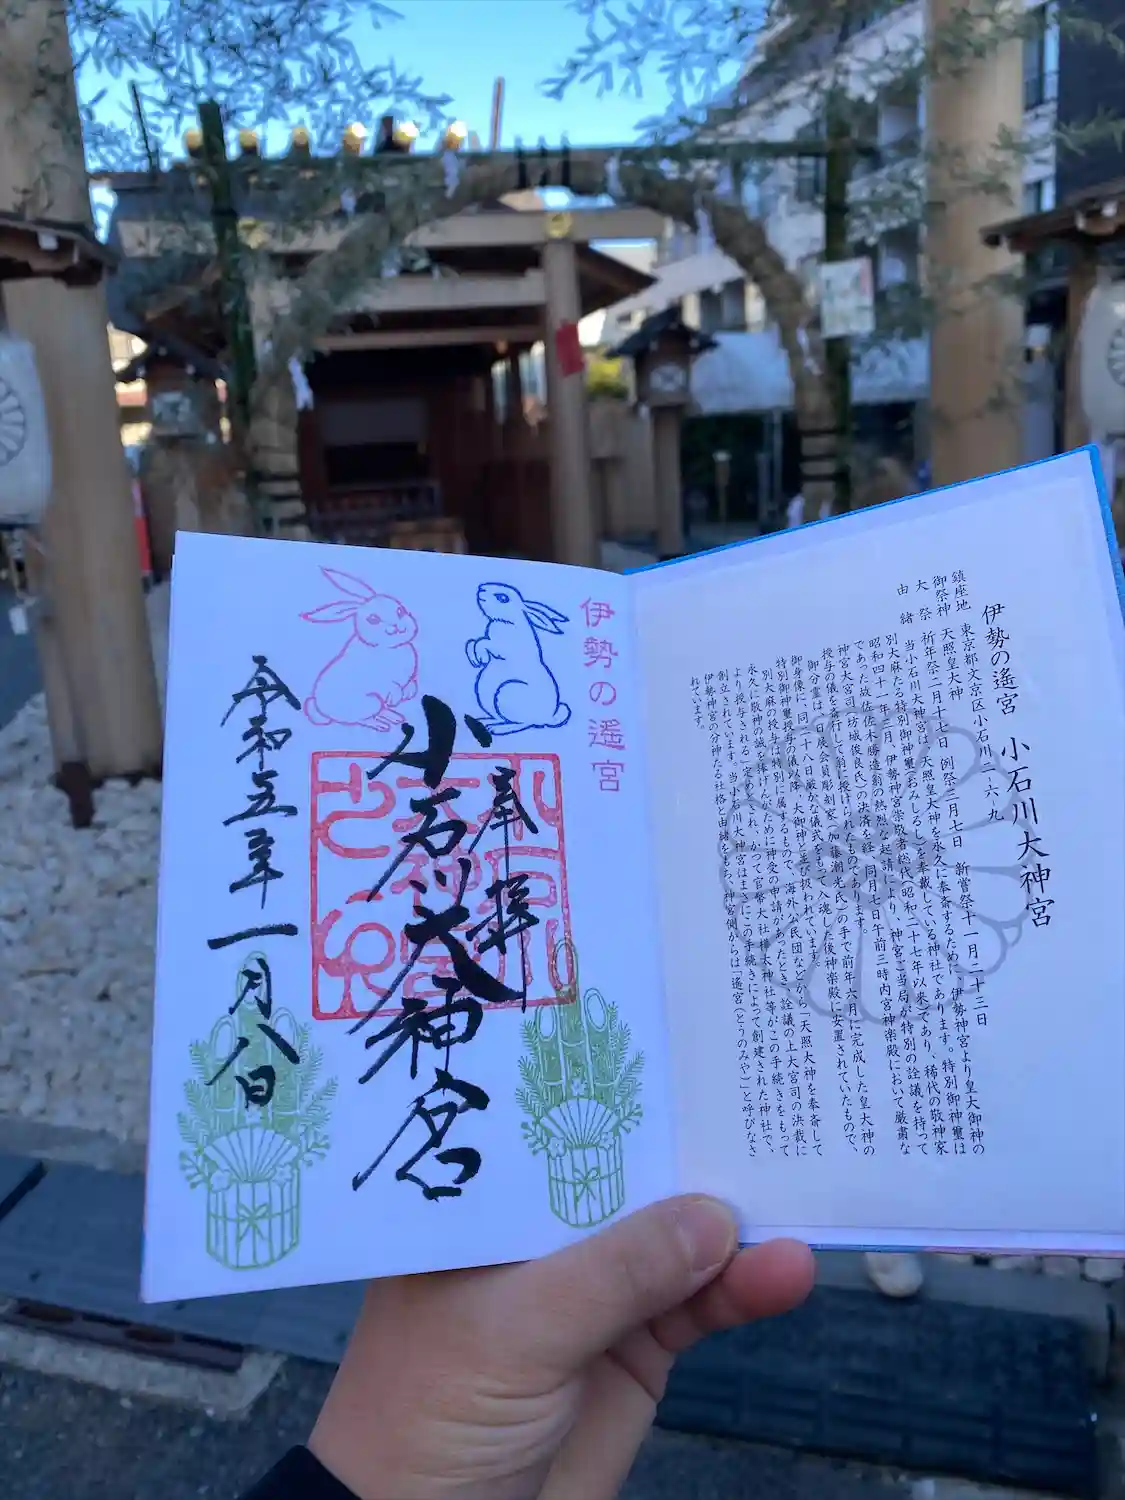 伊勢の遥宮　小石川大神宮
鎮座地　東京都文京区小石川二-六-九
御祭神　天照皇大神
大祭　祈年祭二月十七日　例祭三月七日　新嘗祭十一月二十三日
由緒　当小石川大神宮は、天照皇大神を永久に奉斎するために、伊勢神宮より皇大御神の
別大麻たる特別御神璽(おみしるし)を奉戴している神社であります。特別御神璽は
昭和四十一年三月、伊勢神宮崇敬者総代(昭和二十七年以来)であり、稀代の敬神家
であった故佐佐木勝造翁の熱烈な起請により、神宮ご当局が特別の詮議を持って
神宮大宮司(坊城俊良氏)の決済を経、同月七日午前三時内宮神楽殿において厳粛な
授与の儀を斎行して翁に授けられたものであります。
御分霊は、日展会員彫刻家(加藤潮光氏)の手で前年六月に完成した皇大神の
御身像に、同二十八日厳かな儀式をもって入魂した後神楽殿に安置されていたもので、
特別御神璽授与の儀以降、大御神と並び扱われています。
別大麻の授与は特別に属するもので、海外公民団などから「天照大神を奉斎して
永久に敬神の誠を捧げんために神受の申請があったとき、詮議の上大宮司の決裁に
より授与される」定めとされ、かつて官幣大社樺太神社等がこの手続きをもって
創立されています。当小石川大神宮はまさにこの手続きによって創建された神社で、
伊勢神宮の分神たる社格と由緒をもち、神宮側からは「遥宮(とうのみや)」と呼びなさ
れています。
伊勢の遥宮
奉拝
小石川大神宮
令和五年一月八日